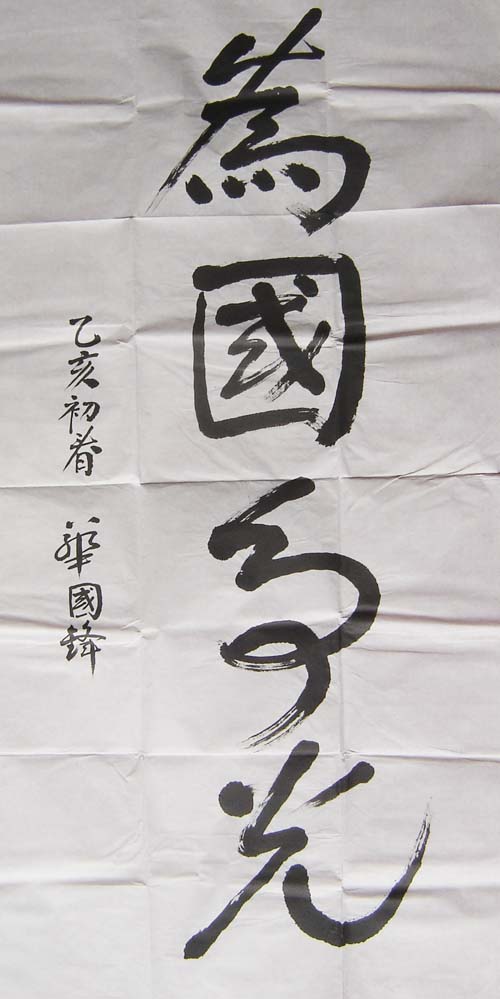 為國爭光
乙亥初春 華國鋒